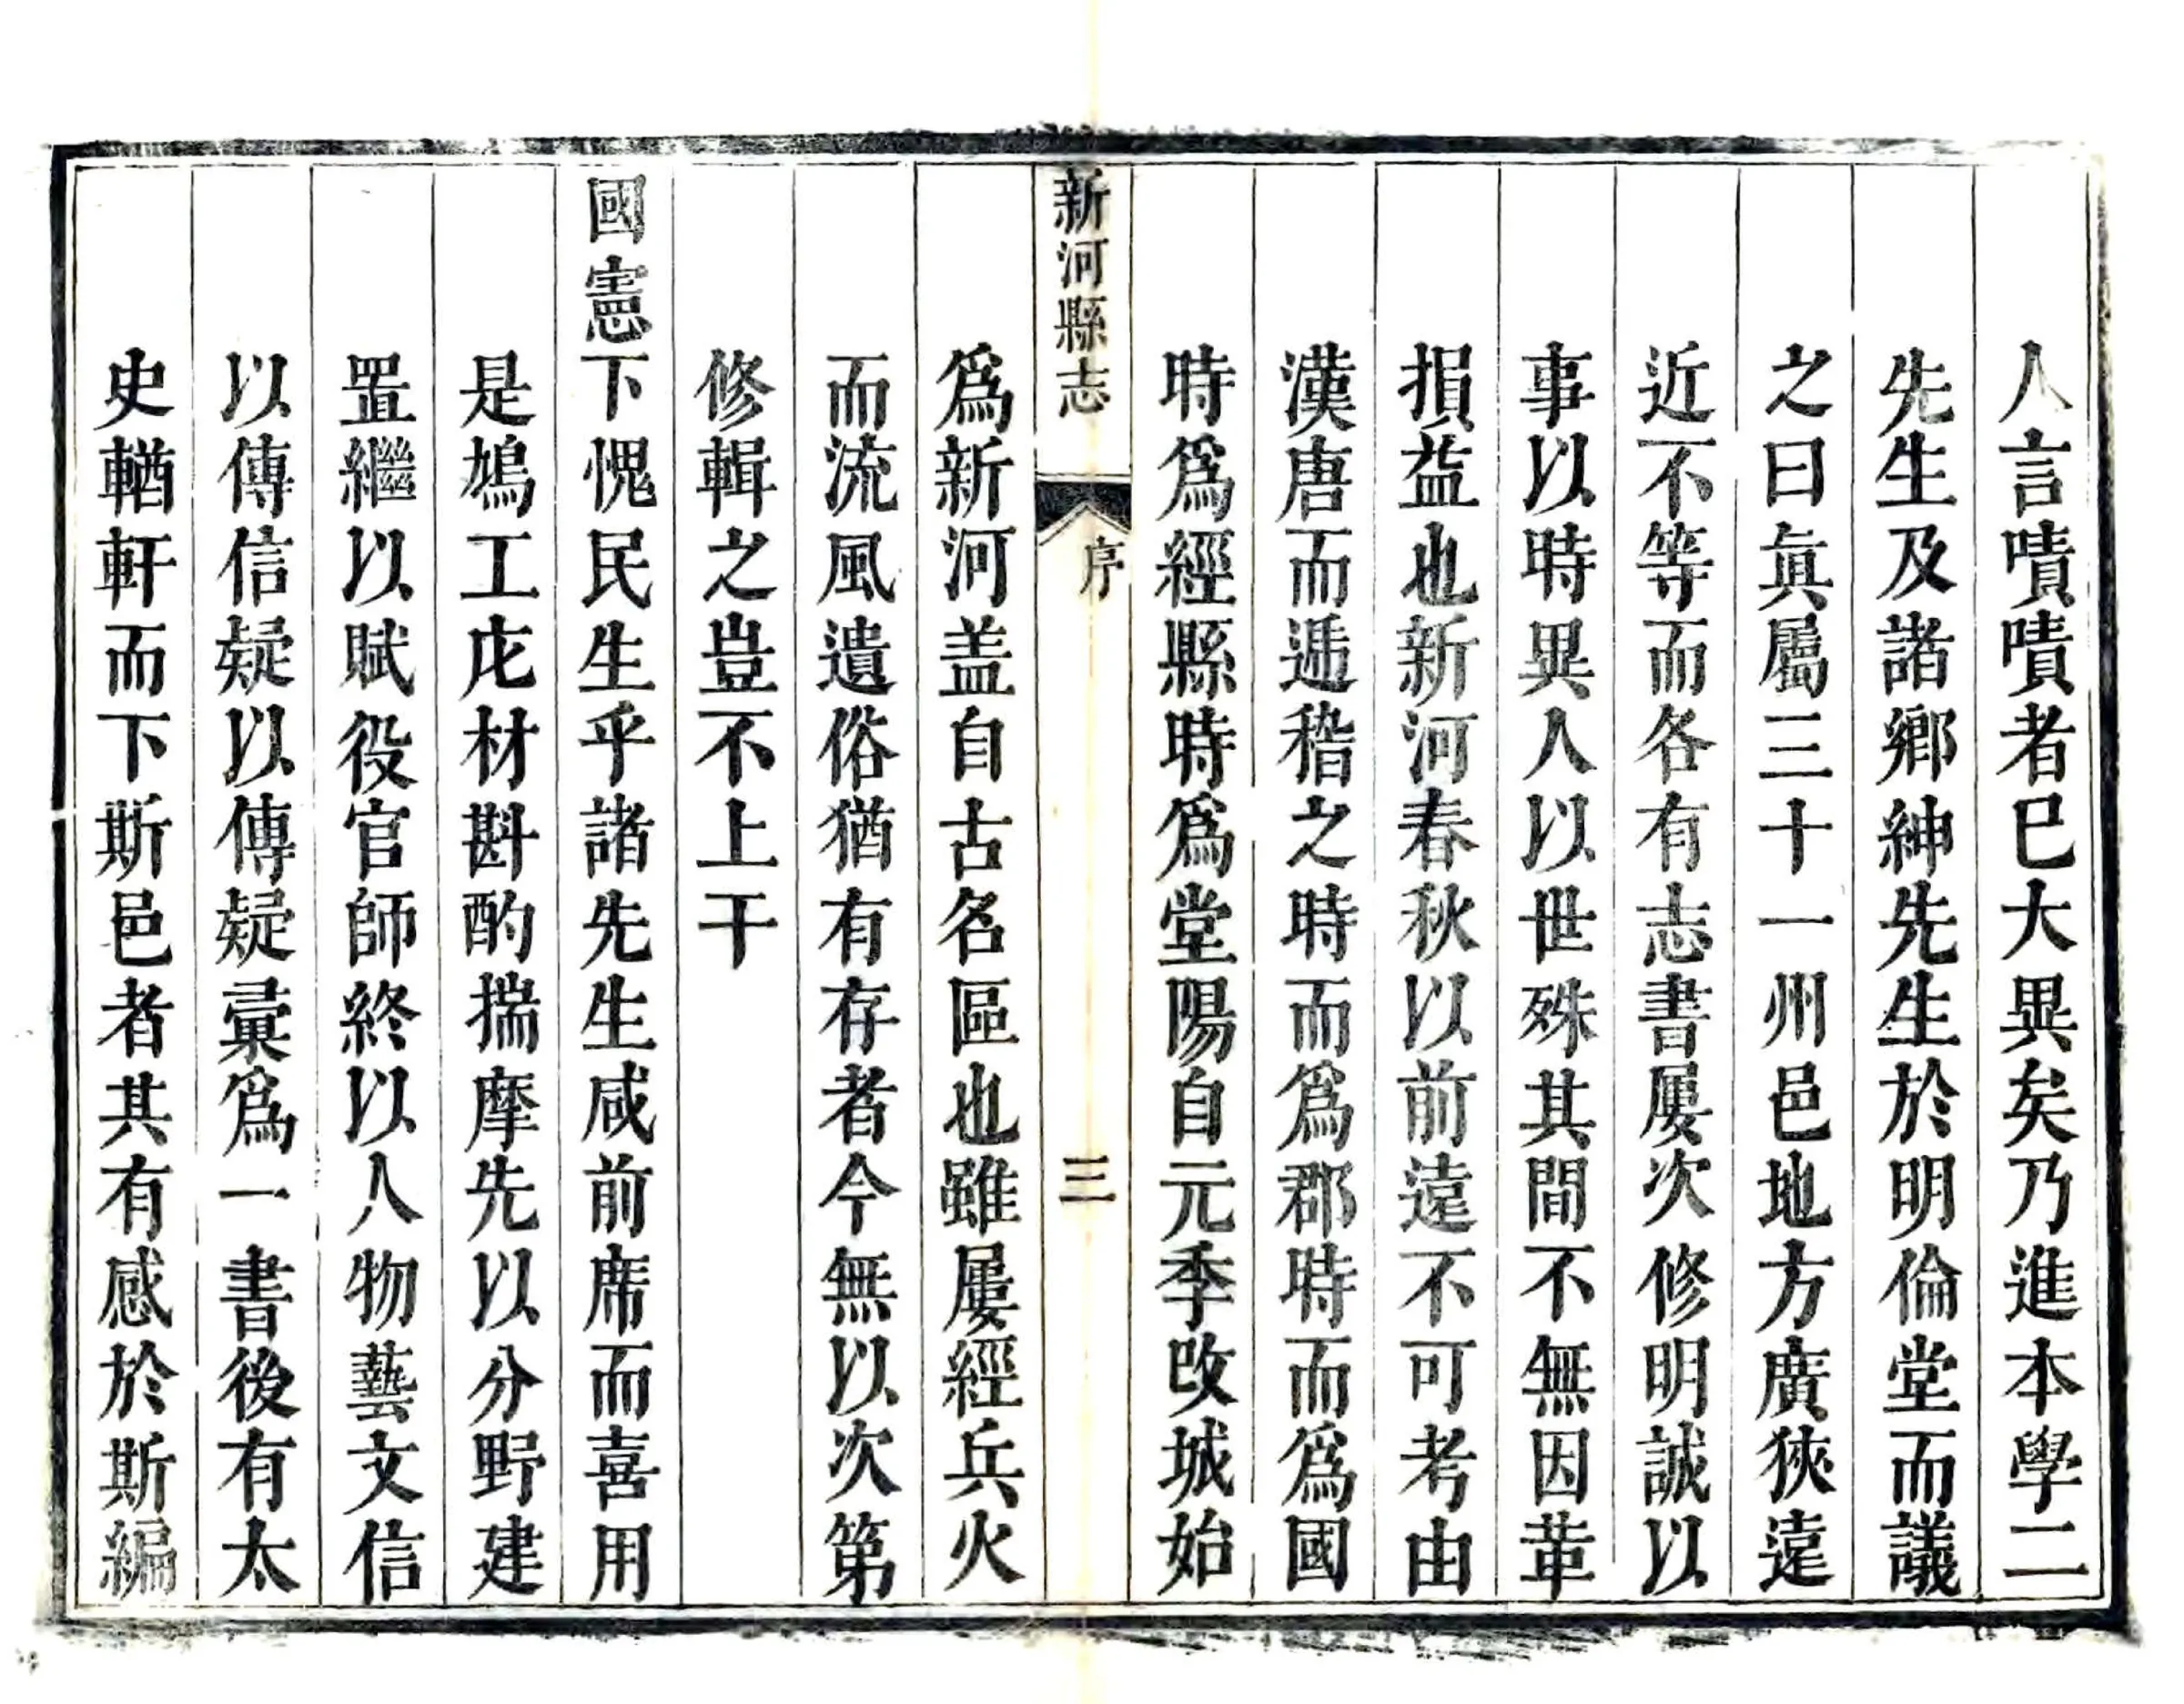 人言嘖嘖者已大異矣乃進本學二
先生及諸鄉紳先生於明倫堂而議
之曰眞屬三十一州邑地方廣狹遠
近不等而各有志書屢次修明誠以
事以時異人以世殊其間不無因革
損益也新河春秋以前遠不可考由
漢唐而遞稽之時而爲郡時而爲國
時爲經縣時爲堂陽自元季改城始
新河縣志
序
三
爲新河盖自古名區也雖屢經兵火
而流風遺俗猶有存者今無以次第
修輯之豈不上干
國憲下愧民生乎諸先生咸前席而喜用
是鳩工庀材斟酌揣摩先以分野建
置繼以賦役官師終以人物藝文信
以傳信疑以傳疑彙爲一書後有太
史輶軒而下斯邑者其有感於斯編